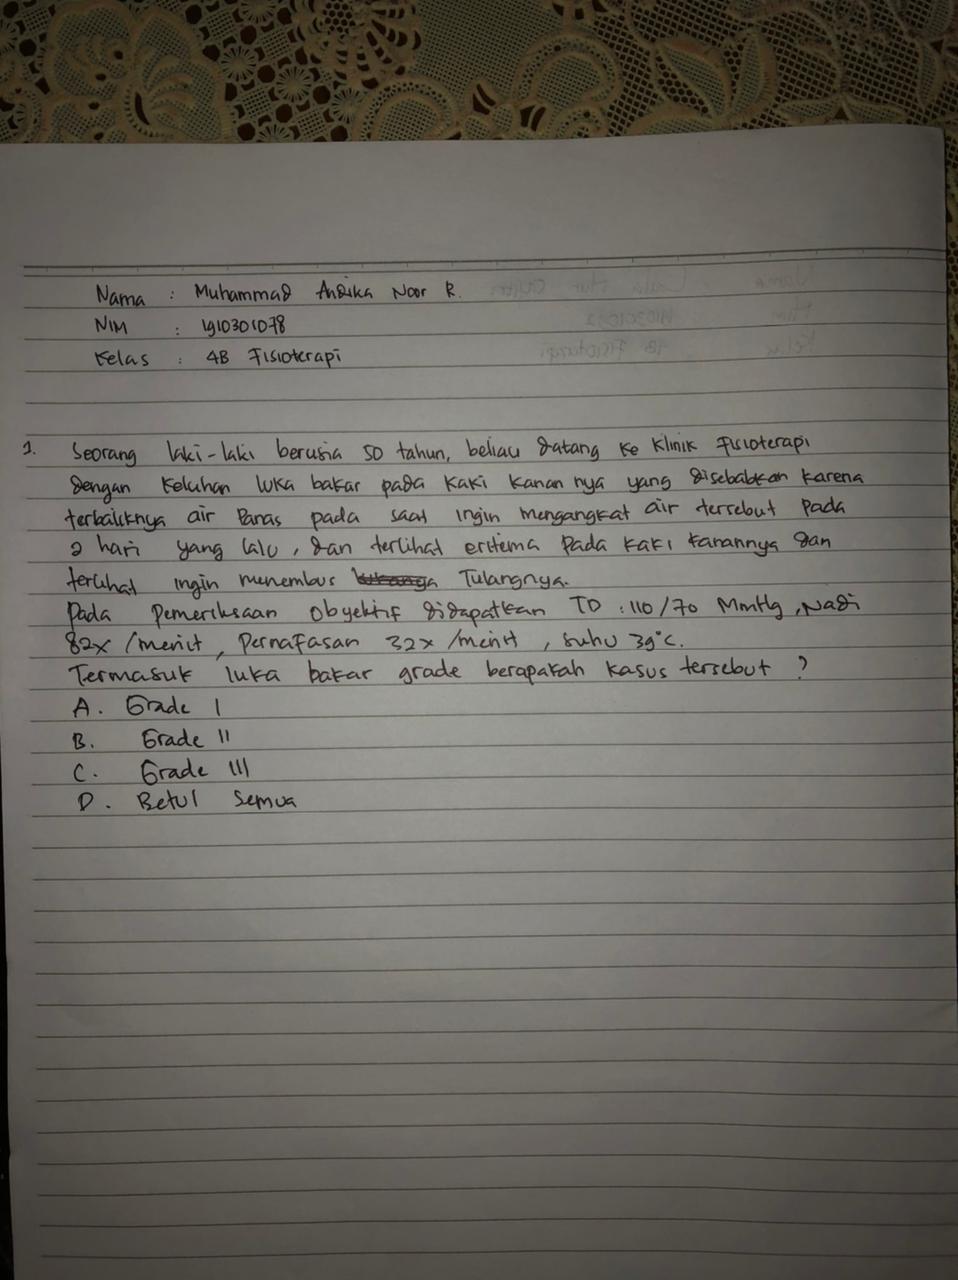 Nama : Muhammad Andika Noor R.
NIM : 1910301078
Kelas : 4B Fisioterapi
1. Seorang laki-laki berusia 50 tahun, beliau datang ke Klinik Fisioterapi
dengan keluhan luka bakar pada kaki kanan nya yang disebabkan karena
terbaliknya air Panas pada saat ingin mengangkat air tersebut Pada
2 hari yang lalu, dan terlihat eritema Pada kaki kanannya dan
terlihat ingin menembus Tulangnya.
Pada Pemeriksaan Obyektif didapatkan TD : 110/70 MmHg, Nadi
82x /menit, Pernafasan 32x /menit, suhu 39°C.
Termasuk luka bakar grade berapakah kasus tersebut ?
A. Grade I
B. Grade II
C. Grade III
D. Betul Semua